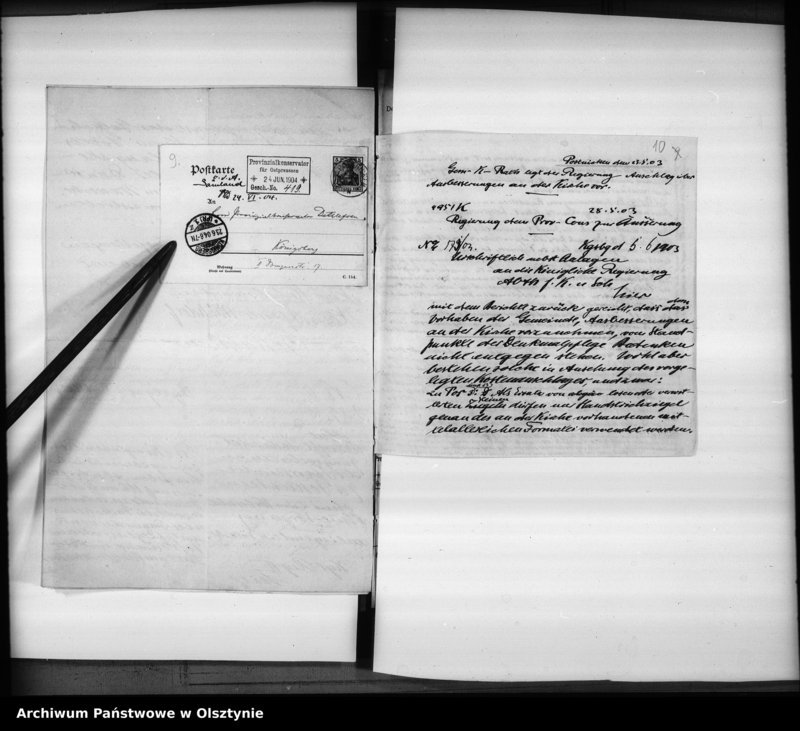 9.
Postkarte
Provinzialkonservator
für Ostpreussen
24 JUN. 1904
Gesch.-No. 419.
z. d. A.
Samland
Kbg 24. VI. 04.
An
Herrn Provinzialkonservator Dethlefsen
Königsberg
Wohnung
(Straße und Hausnummer)
C. 154.
10
Postnicken den 23.5.03
Gem-K-Rath legt der Regierung Anschlag über
Ausbesserungen an der Kirche vor.
4951 K 28.5.03
Regierung dem Prov- Cons zur Äußerung
Kgsbg d 5. 6 1903
Urschriftlich nebst Anlagen
an die Königliche Regierung
Abth f. K. u Sch
hier
mit dem Bericht zurück gereicht, dass dem
Vorhaben der Gemeinde, Ausbesserungen
an der Kirche vorzunehmen, vom Stand-
punkte der Denkmalpflege Bedenken
nicht entgegen stehen. Wohl aber
bestehen solche in Ansehung des vorge-
legten Kostenanschlages, und zwar:
zu Pos Als Ersatz von
dürfen nur Handstrichziegel
genau des an der Kirche vorhandenen mit-
telalterlichen Formates verwendet werden.
Archiwum Państwowe w Olsztynie